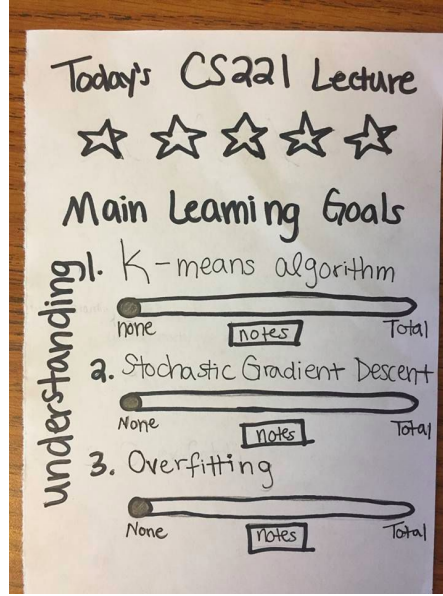 Today's CS221 Lecture
Main Learning Goals
understanding
1. K-means algorithm
none notes Total
2. Stochastic Gradient Descent
None notes Total
3. Overfitting
None notes Total